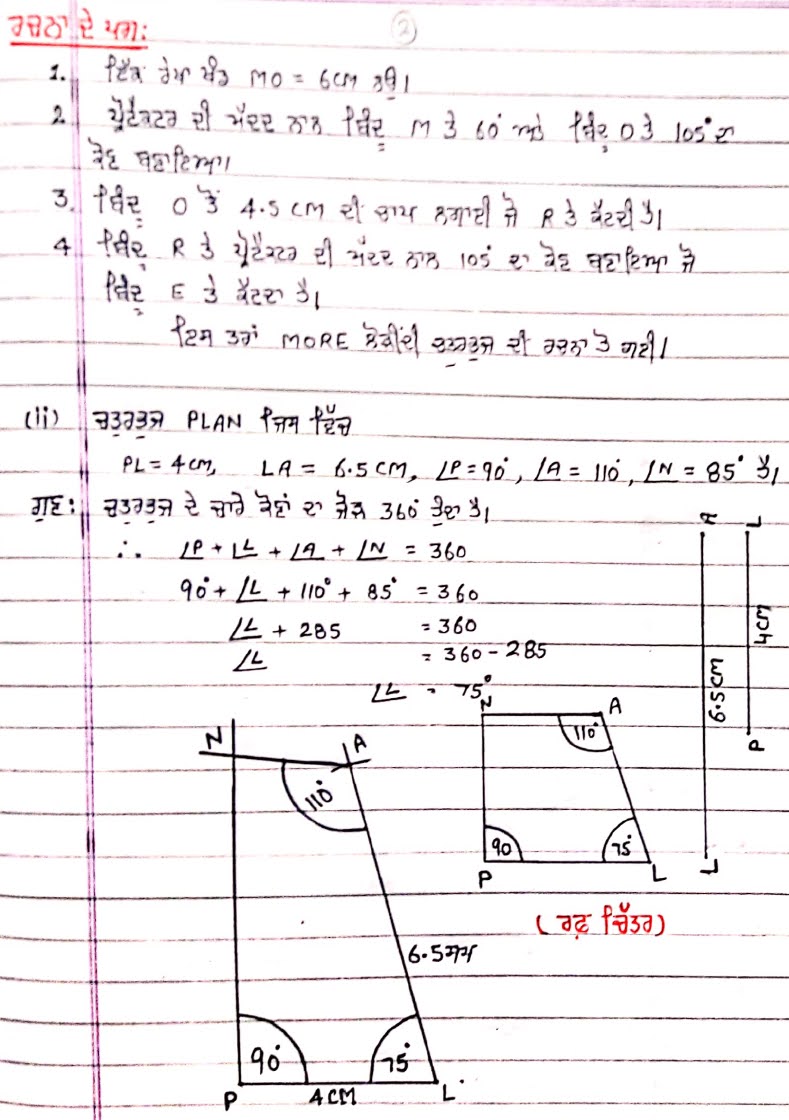 ਰਚਨਾ ਦੇ ਪਗ:
2
1. ਇੱਕ ਰੇਖਾ ਖੰਡ MO = 6CM ਲਉ।
2 ਪ੍ਰੋਟੈਕਟਰ ਦੀ ਮੱਦਦ ਨਾਲ ਬਿੰਦੂ M ਤੇ 60° ਅਤੇ ਬਿੰਦੂ O ਤੇ 105° ਦਾ
ਕੋਣ ਬਣਾਇਆ।
3. ਬਿੰਦੂ O ਤੋਂ 4.5 CM ਦੀ ਚਾਪ ਲਗਾਈ ਜੋ R ਤੇ ਕੱਟਦੀ ਹੈ।
4 ਬਿੰਦੂ R ਤੇ ਪ੍ਰੋਟੈਕਟਰ ਦੀ ਮੱਦਦ ਨਾਲ 105° ਦਾ ਕੋਣ ਬਣਾਇਆ ਜੋ
ਬਿੰਦੂ E ਤੇ ਕੱਟਦਾ ਹੈ।
ਇਸ ਤਰਾਂ MORE ਲੋੜੀਂਦੀ ਚਤੁਰਭੁਜ ਦੀ ਰਚਨਾ ਹੋ ਗਈ।
(ii) ਚਤੁਰਭੁਜ PLAN ਜਿਸ ਵਿੱਚ
PL = 4CM, LA = 6.5 CM, ∠P = 90°, ∠A = 110°, ∠N = 85° ਹੈ।
ਗੁਣ: ਚਤੁਰਭੁਜ ਦੇ ਚਾਰੇ ਕੋਣਾਂ ਦਾ ਜੋੜ 360° ਹੁੰਦਾ ਹੈ।
∴ ∠P + ∠L + ∠A + ∠N = 360
90° + ∠L + 110° + 85° = 360
∠L + 285 = 360
∠L = 360 - 285
∠L = 75°
A
L
6.5CM
L
4CM
P
N A
110°
90 75°
P L
(ਰਫ਼ ਚਿੱਤਰ)
N A
110°
6.5ਸਮ
90° 75°
P 4CM L